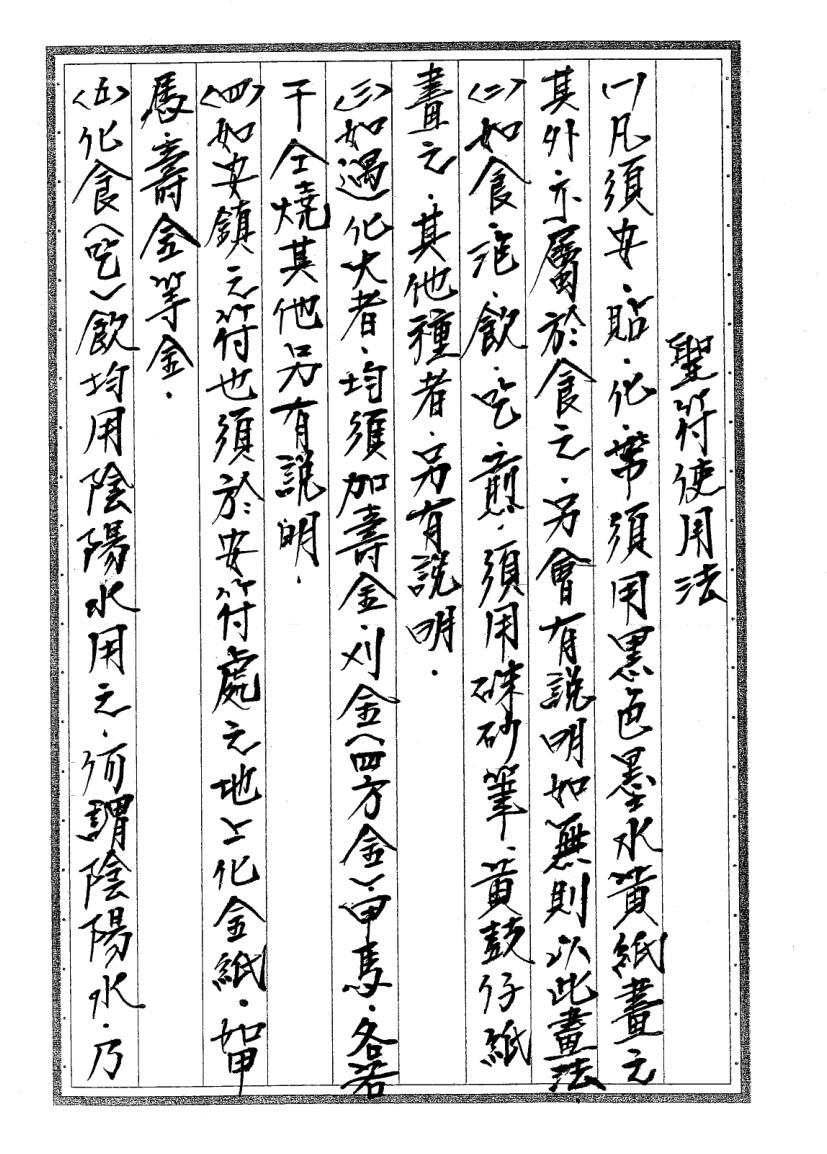 聖符使用法
(一)凡須安.貼.化.帶須用黑色墨水黃紙畫之
其外.亦屬於食之.另會有說明如無則以此畫法
(二)如食.泡.飲.吃.煎.須用硃砂筆.黃鼓仔紙
畫之.其他種者.另有說明.
(三)如遇化火者.均須加壽金.刈金(四方金).甲馬.各若
干仝燒其他另有說明.
(四)如安鎮之符也須於安符處之地上化金紙.如甲
馬.壽金等金.
(五)化食(吃)飲均用陰陽水用之.何謂陰陽水.乃